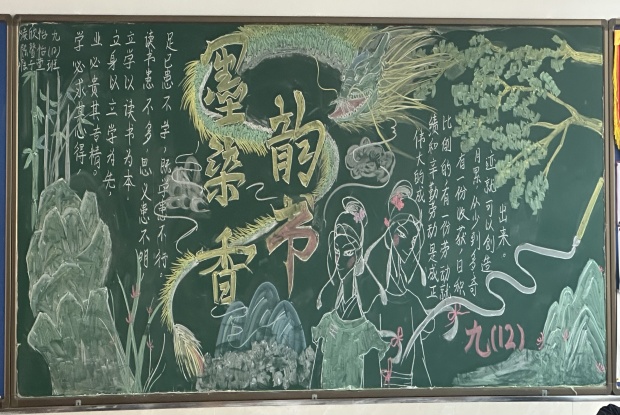 九(12)班
学必求其心得
业必贵其专精。
立身以立学为先,
立学以读书为本
读书患不多 思义患不明
足已患不学,既学患不行
墨染香
韵书
伟大的成
绩和辛勤劳动是成正
比例的有一份劳动就
有一份收获日积
月累从少到多奇
迹就可以创造
出来。
九(12)